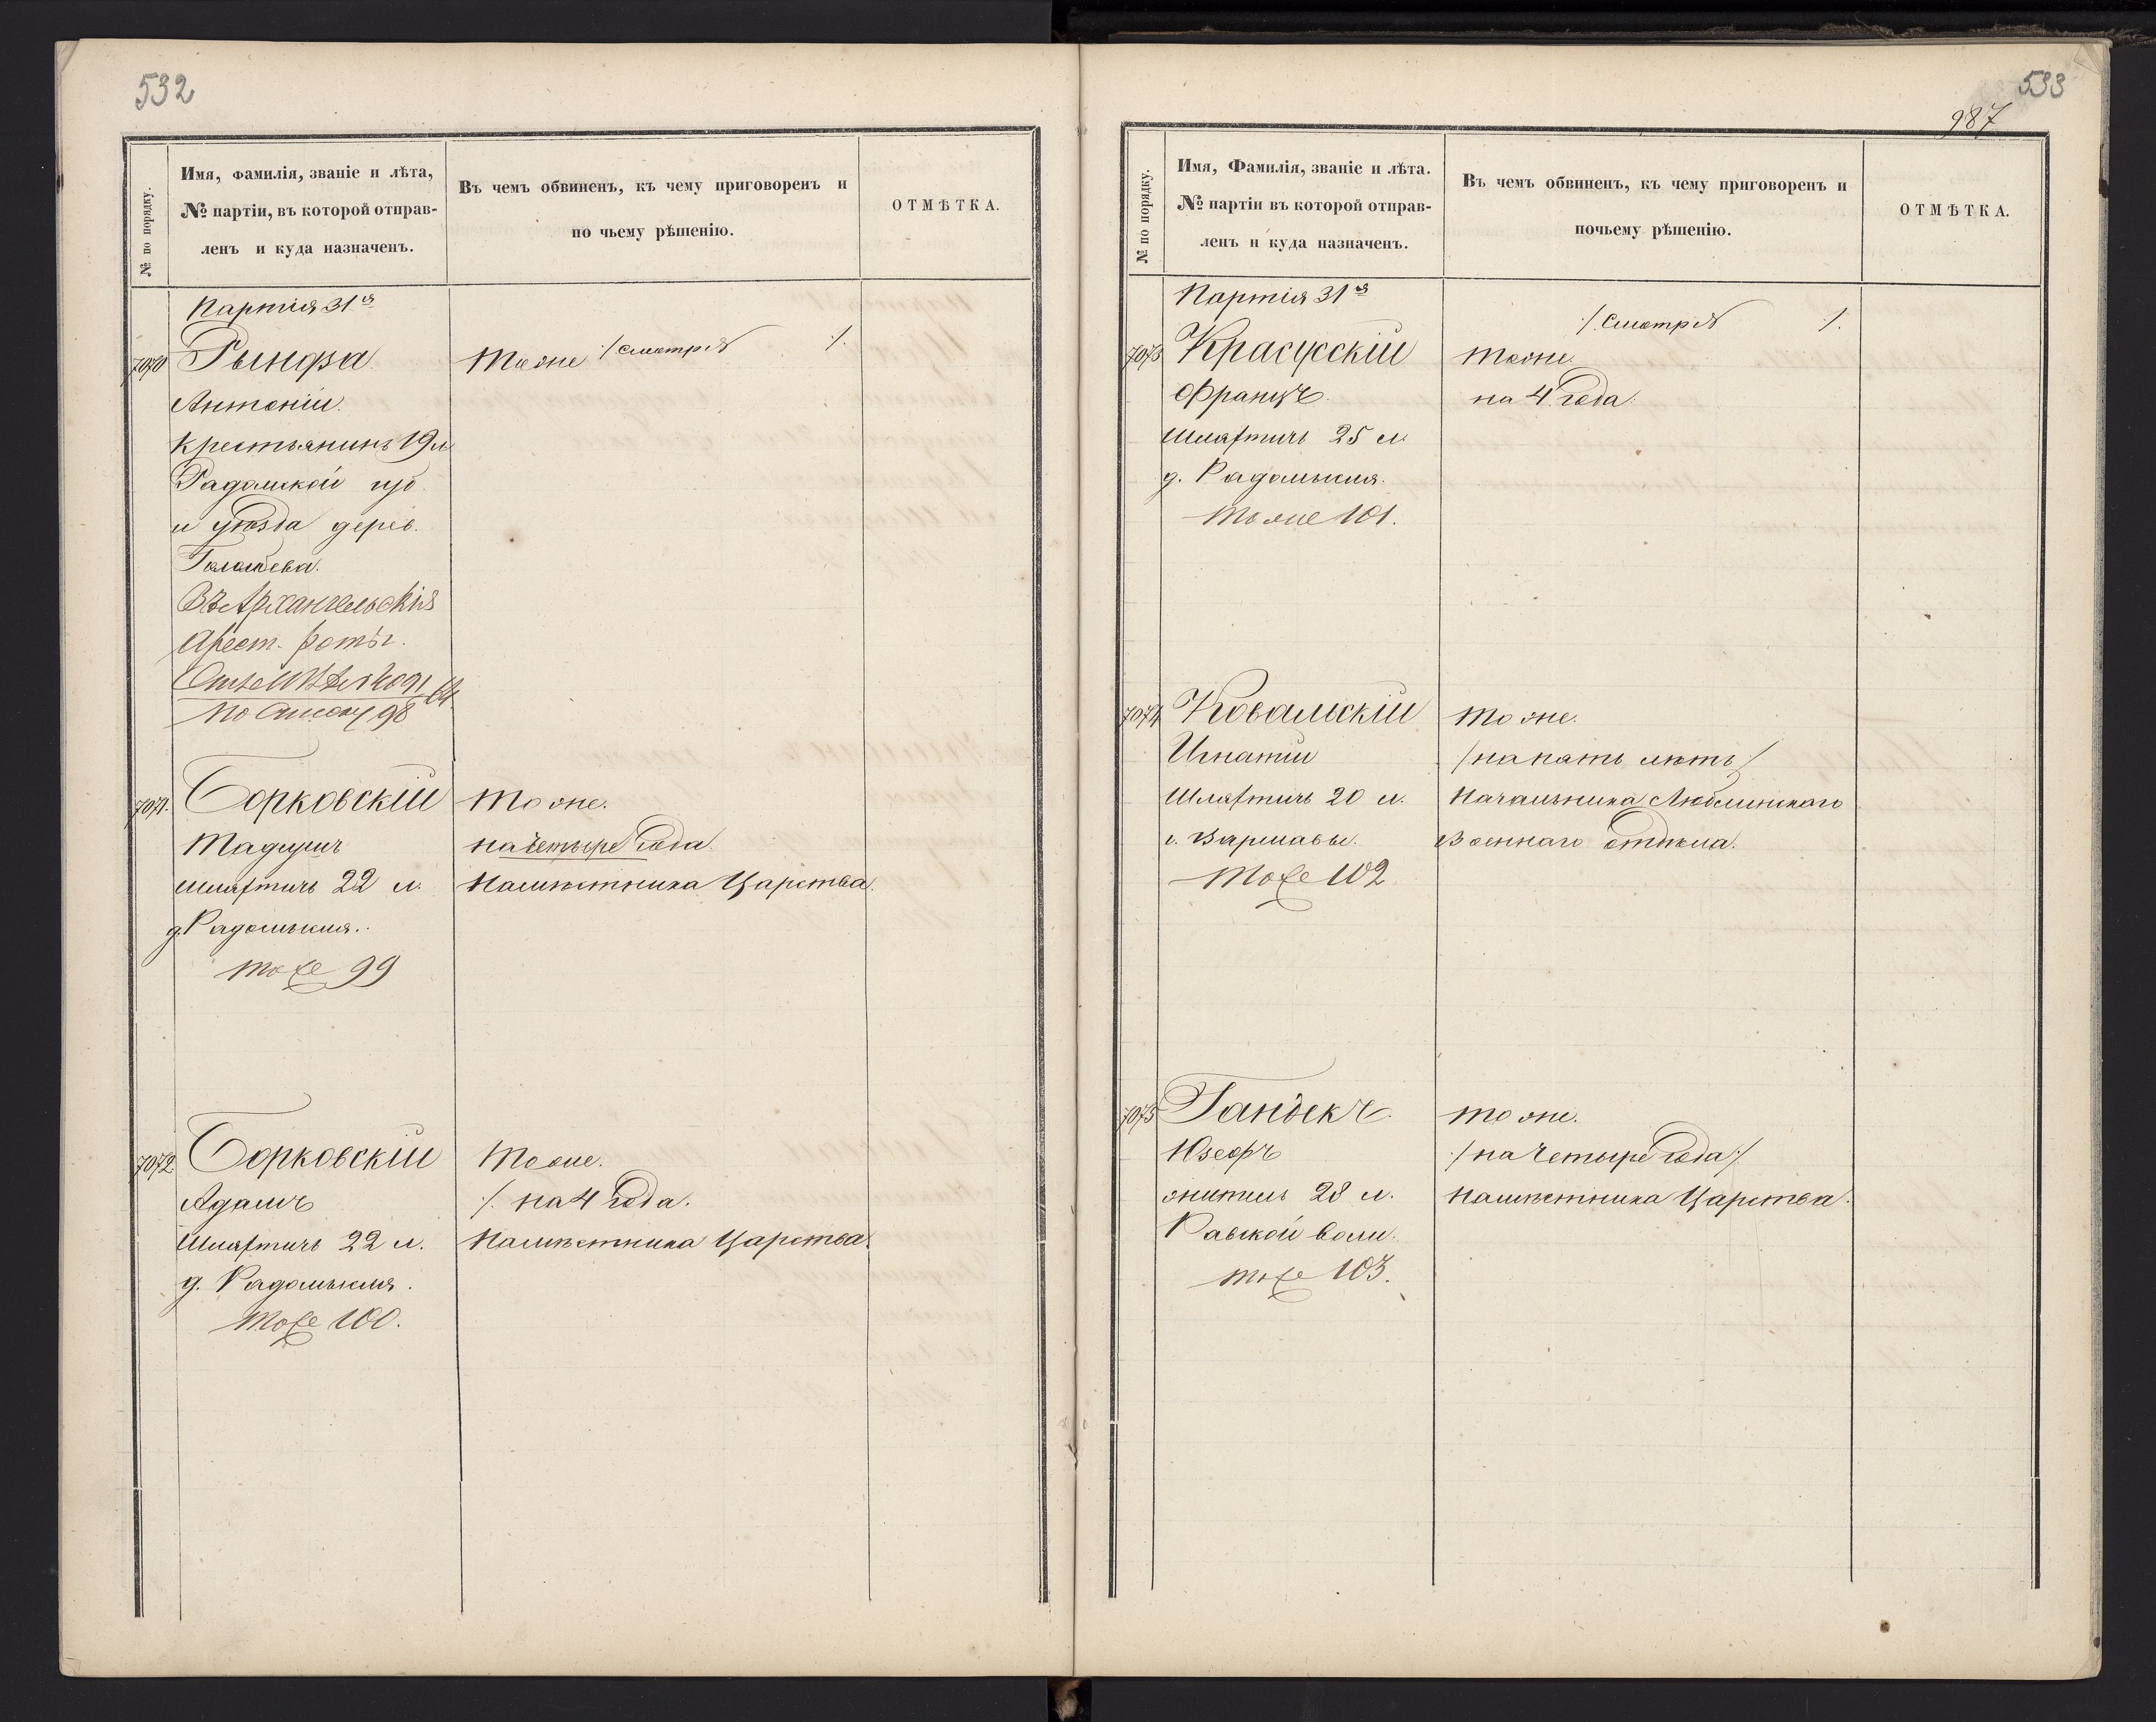 532
№ по порядку.
Имя, фамилія, званіе и лѣта,
№ партіи, въ которой отправ-
ленъ и куда назначенъ.
Въ чемъ обвиненъ, къ чему приговоренъ и
по чьему рѣшенію.
ОТМѢТКА.
Партія 31я
7070 Рындза Тоже /: Смотри № /.
Антоній.
крестьянинъ 19 л
Радомской губ.
и уѣзда дерев.
Въ Архангельскія
Арест. роты.
По списку 98
7071. Борковскій Тоже.
Тадеушъ на четыре года.
шляхтичъ 22 л. Намѣстника Царства.
д. Радомысля.
тоже 99
7072 Борковскій Тоже.
Адамъ /: на 4 года.
Шляхтичъ 22 л. Намѣстника Царства.
д. Радомысля.
тоже 100.
533
987
№ по порядку.
Имя, Фамилія, званіе и лѣта.
№ партіи въ которой отправ-
ленъ и куда назначенъ.
Въ чемъ обвиненъ, къ чему приговоренъ и
почьему рѣшенію.
ОТМѢТКА.
Партія 31я
/: Смотри № /.
7073 Красусскій тоже.
Францъ на 4 года.
шляхтичъ 25 л.
д. Радомысля.
Тоже 101.
7074 Ковальскій тоже.
Игнатій /на пять лѣтъ/
Шляхтичъ 20 л. Начальника Люблинскаго
г. Варшавы. Военнаго отдѣла.
Тоже 102
7075 Гандекъ. тоже.
Юзефъ /: на четыре года :/
житель 28 л. Намѣстника Царства.
Равской воли.
тоже 103.